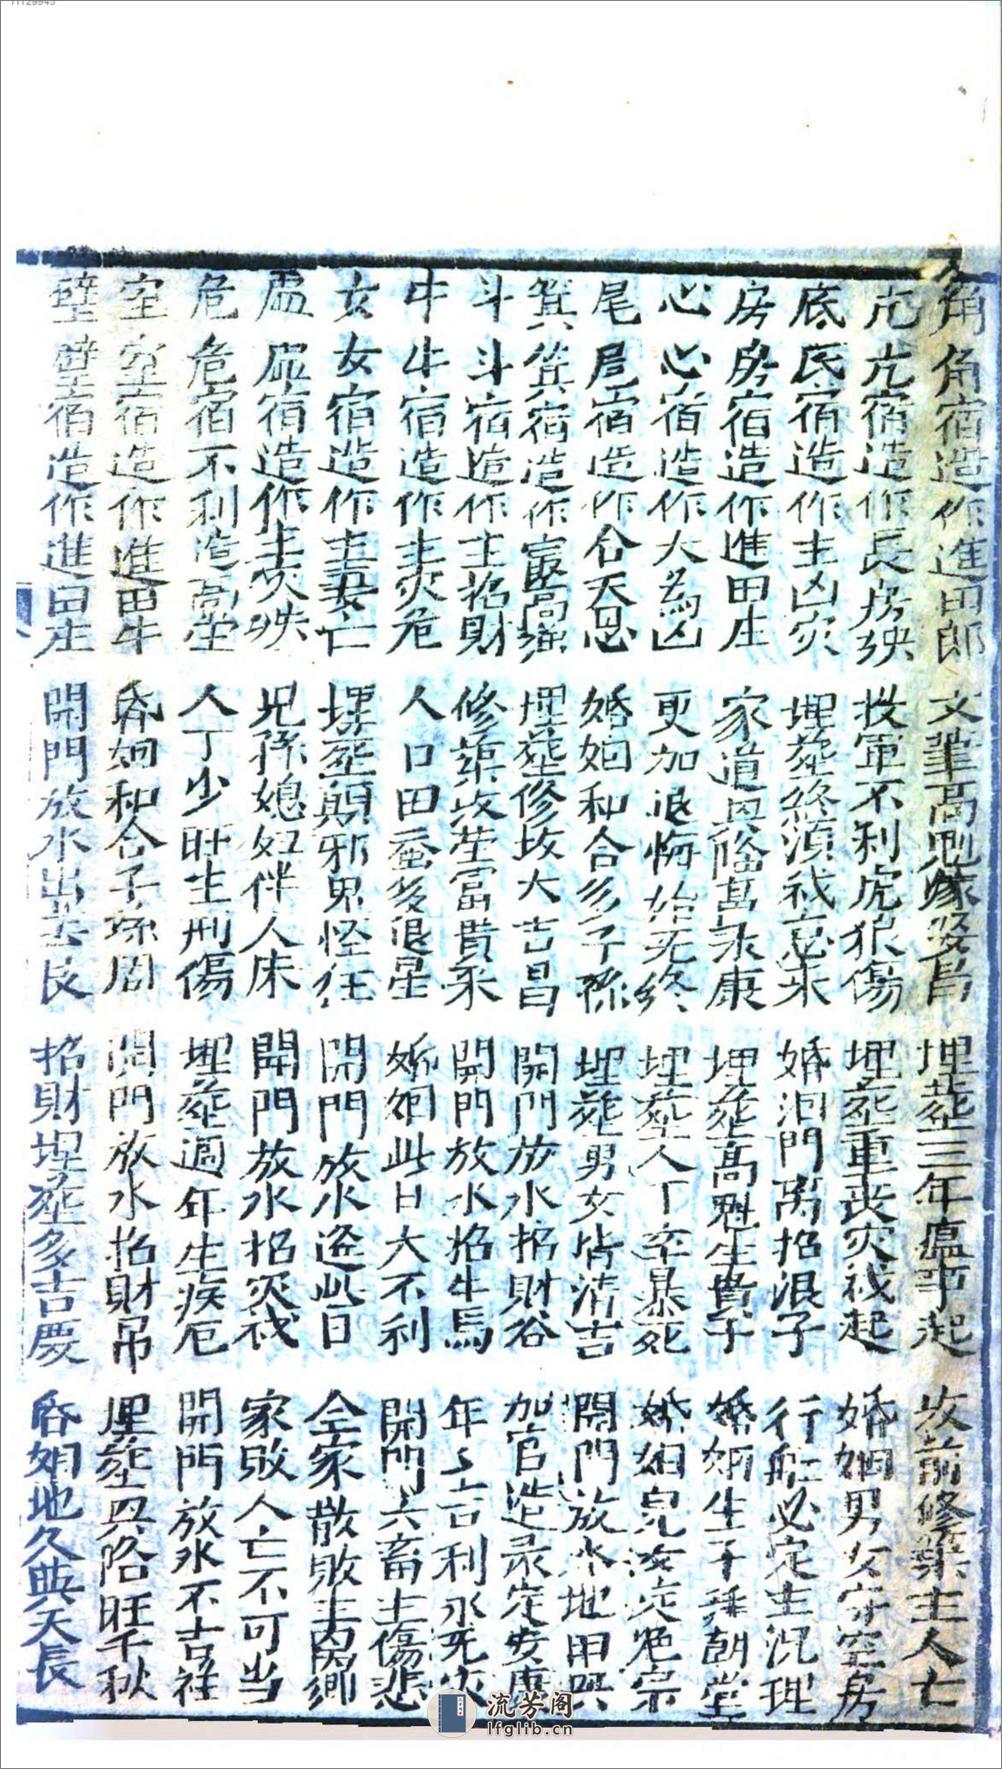 角 角宿造作進田郎 文筆高魁嫁娶昌 埋葬三年瘟事起 坟前修築主人亡
亢 亢宿造作長房殃 投軍不利虎狼傷 埋葬重丧灾祸起 婚姻男女守空房
底 氏宿造作主凶灾 埋葬終須祸忽来 婚泪門离招浪子 行船必定主沉埋
房 房宿造作進田庄 家道興隆甚永康 埋葬高魁生貴子 婚姻生子拜朝堂
心 心宿造作大為凶 更加退悔始无终 埋葬人丁卒暴死 婚姻兒女定绝宗
尾 尾宿造作合天恩 婚姻和合多子孫 埋葬男女皆清吉 開門放水地用興
箕 箕宿造作富高强 埋葬修坟大吉昌 開門放水招財谷 加官造录定安康
斗 斗宿造作主招財 修築坟茔富貴来 開門放水招牛馬 年々吉利永死灾
牛 牛宿造作主灾危 人口田蚕多退星 婚姻此日大不利 開門六畜主傷悲
女 女宿造作主妻亡 埋葬顛邪鬼怪狂 開門放水逢此日 全家散败主离鄉
虚 虚宿造作主灾殃 兒孫媳妇伴人床 開門放水招灾祸 家败人亡不可当
危 危宿不利造高堂 人丁少旺生刑傷 埋葬過年生疾厄 開門放水不吉祥
室 室宿造作進田牛 婚姻和合子孫周 開門放水招財帛 埋葬興隆旺千秋
壁 壁宿造作進田庄 開門放水出去良 招財埋葬多吉慶 婚姻地久與天長
流芳阁
lfglib.cn
11129945